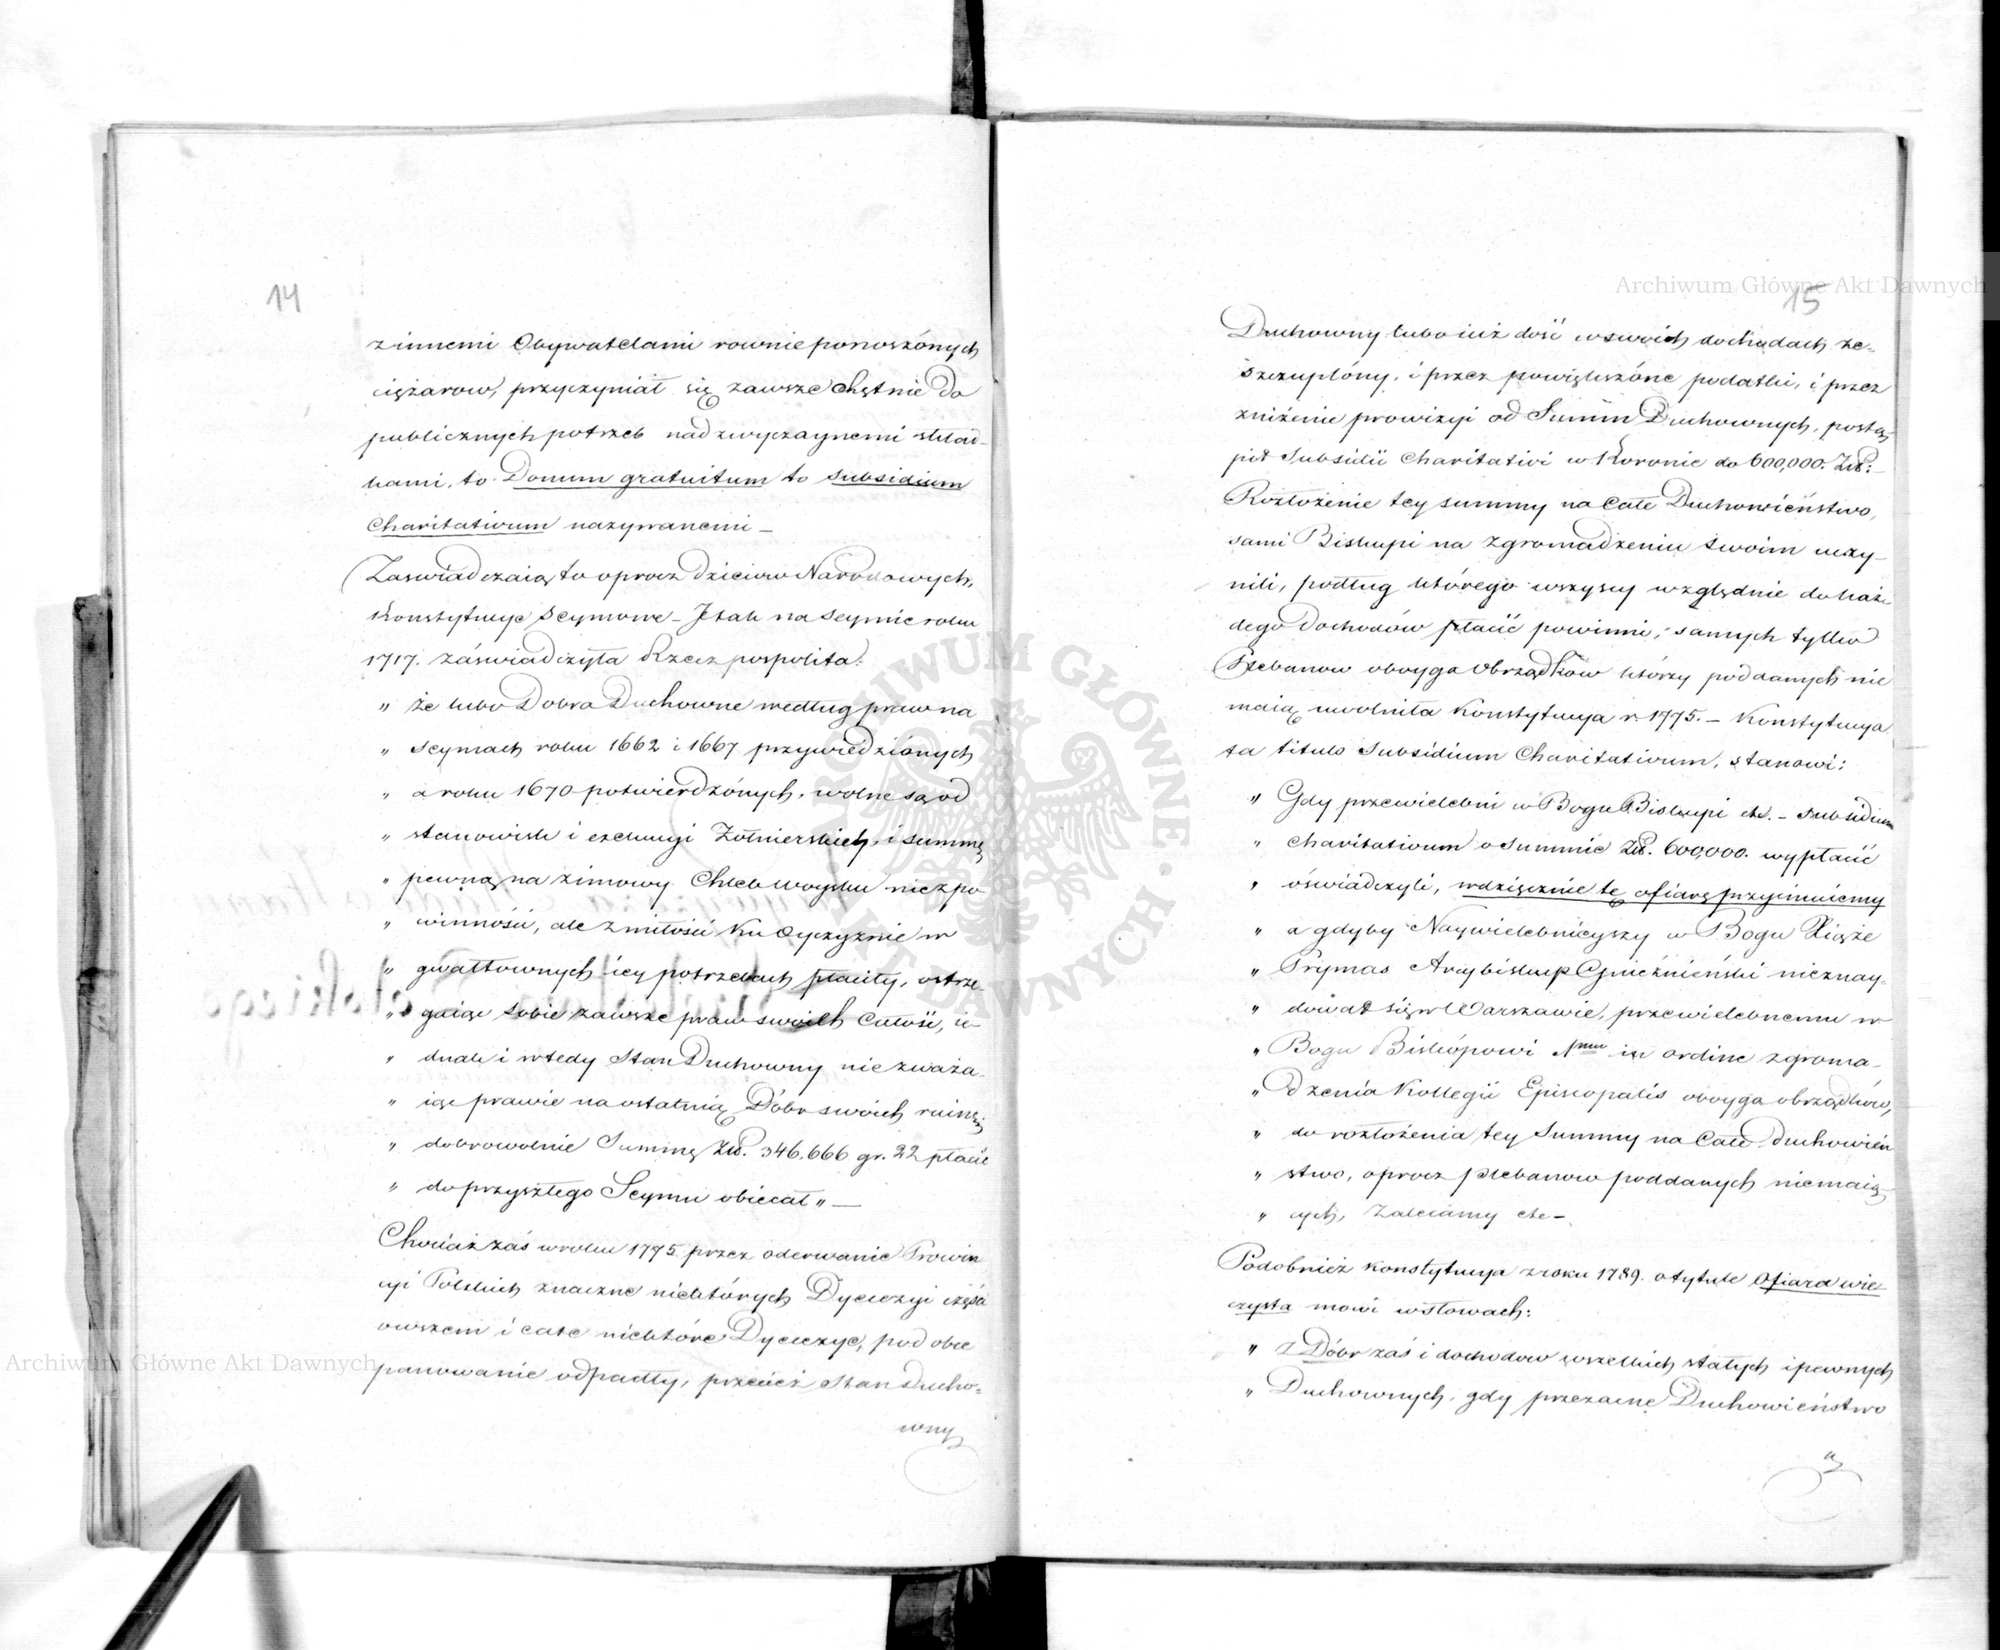 14
z innemi Obywatelami rownie ponoszónych
ciężarow, przyczyniał się zawsze chętnie do
publicznych potrzeb nadzwyczaynemi skład-
kami, to Donum gratuitum to subsidium
Charitativum nazywanemi —
Zaswiadczaią to oprocz Dzieiow Narodowych,
Konstytucye Seymowe — I tak na seymie roku
1717. zaświadczyła Rzecz pospolita:
„ że lubo Dobra Duchowne według praw na
„ seymach roku 1662 i 1667 przywiedzionych
„ a roku 1670 potwierdzónych, wolne są od
„ stanowisk i exekucyi Żołnierskiey, i summę
„ pewną na zimowy Chleb Woysku nie z po-
„ winności, ale z miłości ku Oyczyznie w
„ gwałtownych iey potrzebach płaciły, ostrze-
„ gaiąc sobie zawsze praw swoich całość, ie-
„ dnak i wtedy Stan Duchowny nie zważa-
„ iąc prawie na ostatnią Dóbr swoich ruinę,
„ dobrowolnie Summę Złł. 346,666 gr. 22 płacić
„ do przyszłego Seymu obiecał „ —
Chociaż zaś w roku 1775 przez oderwanie Prowin
cyi Polskich znaczne niektórych Dyecezyi części
owszem i całe niektóre Dyecezye, pod obce
panowanie odpadły, przecież Stan Ducho-
wny
15
Duchowny lubo iuż dość w swoich dochodach ze-
szczuplóny, i przez powiększóne podatki, i przez
zniżenie prowizyi od Summ Duchownych, postą-
pił Subsidii Charitativi w Koronie do 600,000. Złł:
Rozłożenie tey summy na całe Duchowieństwo,
sami Biskupi na zgromadzeniu swoim uczy-
nili, podług którego wszyscy względnie do każ-
dego Dochodów płacić powinni, samych tylko
Plebanow oboyga Obrządkow którzy poddanych nie
maią uwolniła Konstytucya r. 1775. — Konstytucya
ta titulo Subsidium Charitativum, stanowi:
„ Gdy przewielebni w Bogu Biskupi etc. — Subsidium
„ Charitativum o Summie Złł. 600,000. wypłacić
„ oświadczyli, wdzięcznie tę ofiarę przyimuiemy
„ a gdyby Naywielebnieyszy w Bogu Xiąże
„ Prymas Arcybiskup Gnieźnieński nieznay-
„ dował się w Warszawie, przewielebnemu w
„ Bogu Biskópowi 1mu in ordine zgroma-
„ dzenia Kollegii Episcopalis oboyga obrządków,
„ do rozłożenia tey Summy na całe Duchowień
„ stwo, oprocz Plebanow poddanych niemaią-
„ cych, zalecamy etc —
Podobnież Konstytucya z roku 1789. o tytule Ofiara wie
czysta mowi w słowach:
„ Z Dóbr zaś i dochodow wszelkich stałych i pewnych
„ Duchownych, gdy przezacne Duchowieństwo